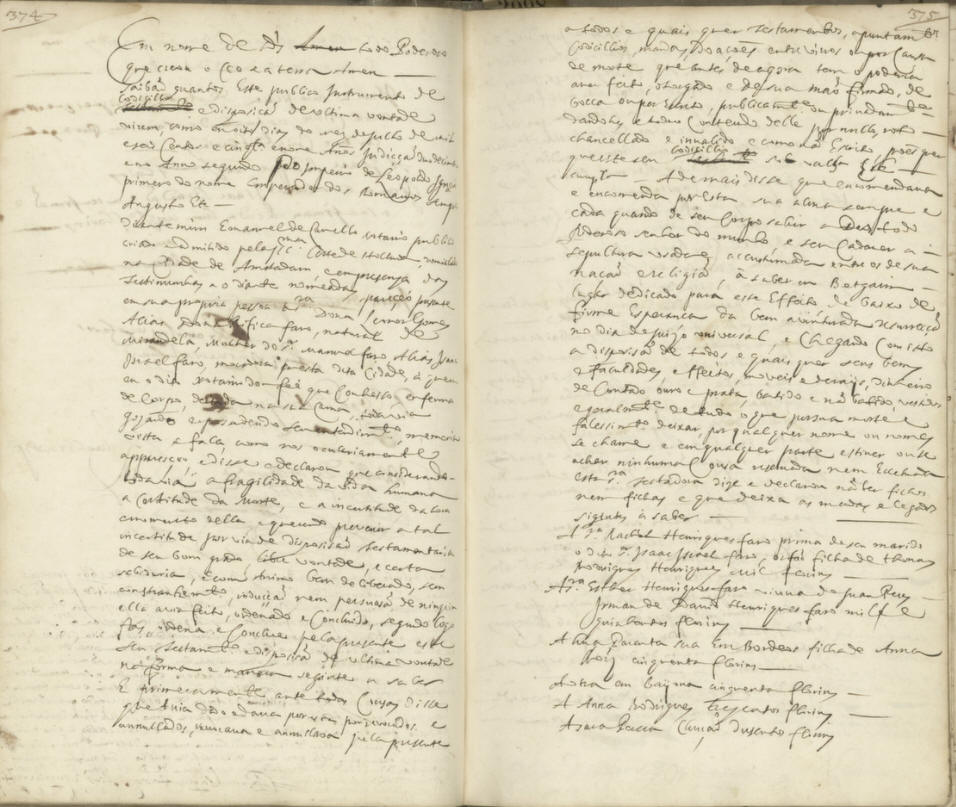 374
Em nome de Ds Amen todo Poderoso
que creou o Ceo e a terra Amen
Saibaõ quantos Este publico Instrumento de
codicillo
e disposicaõ de ultima vontade
virem, como en oito dias do mes de Julho de mil
e seis Centos e cinqto e nove Annos Judicçaõ duodecima
e no Anno segundo do Imperio de Leopoldo
primeiro do nome Emperador dos Romanos sempre
Augusto Etc
Diante mim Emanuel de Carvallo notario publico
criado e admitido pella Corte de Hollanda
na Cidade de Amsterdam, e em presença das
Testimunhas ao diante nomeadas, pareceo presente
en sua propria pessoa a sra Dona Leonor Gomes
Alias Dona Faro, natural de
Mirandela, Mulher do sr Manuel faro Alias Isaac
Israel faro, moradora en esta dita Cidade, á quem
eu o dito notario dou feé que Conhesso, enferma
de Corpo, na sua Cama, todavia
gozando e possuindo seu entendimto, memoria
vista e falla como nos ocularmente
appareceo e disse e declarou que considerando
toda via a fragilidade da vida humana
a Certitude da Morte, e a incertitude da hora
e momento della e querendo prevenir a tal
incertitude por via de disposicaõ Testamentaria
de seu bom grado, libre vontade, e certa
sabiduria, e com Animo bem deliberado, sem
constrangimto, induçaõ nem persuasaõ de ninguem
ella avia feito, ordenado e Concluido, segundo logo
fas, ordena, e Conclue pella presente este
seu testamto e disposiçaõ de ultima vontade
na forma e maneira seguinte a saber
E primeiramente ante todas Cousas disse
que avia dado e dava por revogados e
annullados, revocava e annullava pella presente
375
a todos e quais quer testamentos, apuntamtos
Codicillos, mandas, doaçoes entre vivos ou por Causa
de morte que antes de agora tem o poderia
aver feito, otorgado e de sua maõ firmado, de
bocca ou por Escrito, publicamte ou privadamte
dandohes e todo o Contendo delles por nullo, roto
chancellado e invalido e como naõ Escrito, pois quer
codicillo
que este seu so valha Este
Ademais disse que encomendava
e encomenda por Esta sua alma sempre e
cada quando de seu Corpo sahir a Ds todo
Poderoso senhor do mundo, e seu Cadaver a
sepultura usada e accustumada entre os de sua
naçaõ e religiaõ, á saber en Betgaim
lugar dedicado para esse Effeito de baixo de
firme Esperança da bem aventurada resurreiçaõ
no dia de Juizo universal, e Chegado Com isto
a disposiçaõ de todos e quais quer seus bens
e faculdades e Effeitos, moveis e de rais, dinheiro
de Contado ouro e prata, batido e naõ batido, vestidos
e geralmte de tudo o que por sua morte e
falessimto deixar, por qualquer nome ou nomes
se chame e em qualquer parte estiver ou se
achar ninhuma Cousa resguada nem Exceptuada
Esta sra Testadora dize e declara naõ ter filhos
nem filhas e que deixa as mandas e legados
siguintes á saber
A sra Rachel Henriques faro prima de seu marido
o dito sr Isaac Israel faro, filha de Thomas
Rodrigues Henriques Mil florins
A sra Esther Henriques faro viuva de Juan
Irman de David Henriques faro mil e
quinhentos florins
A hua Parenta sua Em Bordeos filha de Anna
cinquenta florins
A outra em Bayona cinquenta florins
A Anna Rodrigues Trezentos florins
duzento florins